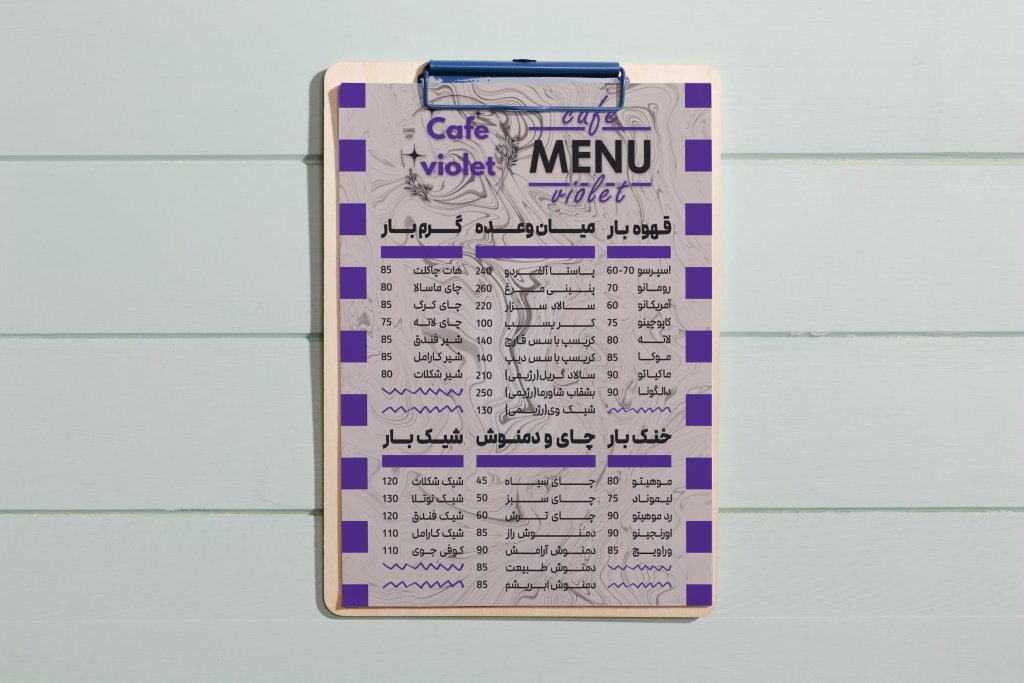 Cafe
violet
cafe
MENU
violet
قهوه بار
اسپرسو 70-60
رومانو 70
آمریکانو 60
کاپوچینو 75
لاته 80
موکا 85
ماکیاتو 90
دالگونا 90
میان وعده
پاستا آلفردو 240
پنینی مرغ 260
سالاد سزار 220
کریسپ 100
کریسپ با سس قارچ 140
کریسپ با سس دیپ 140
سالاد گریل(رژیمی) 210
بشقاب شاورما(رژیمی) 250
شیک وی(رژیمی) 130
گرم بار
هات چاکلت 85
چای ماسالا 80
چای کرک 85
چای لاته 75
شیر فندق 85
شیر کارامل 85
شیر شکلات 80
خنک بار
موهیتو 80
لیموناد 75
رد موهیتو 90
اورنجینو 90
وراویچ 85
چای و دمنوش
چای سیاه 45
چای سبز 50
چای ترش 60
دمنوش راز 85
دمنوش آرامش 90
دمنوش طبیعت 85
دمنوش ابریشم 85
شیک بار
شیک شکلات 120
شیک نوتلا 130
شیک فندق 120
شیک کارامل 110
کوفی جوی 110